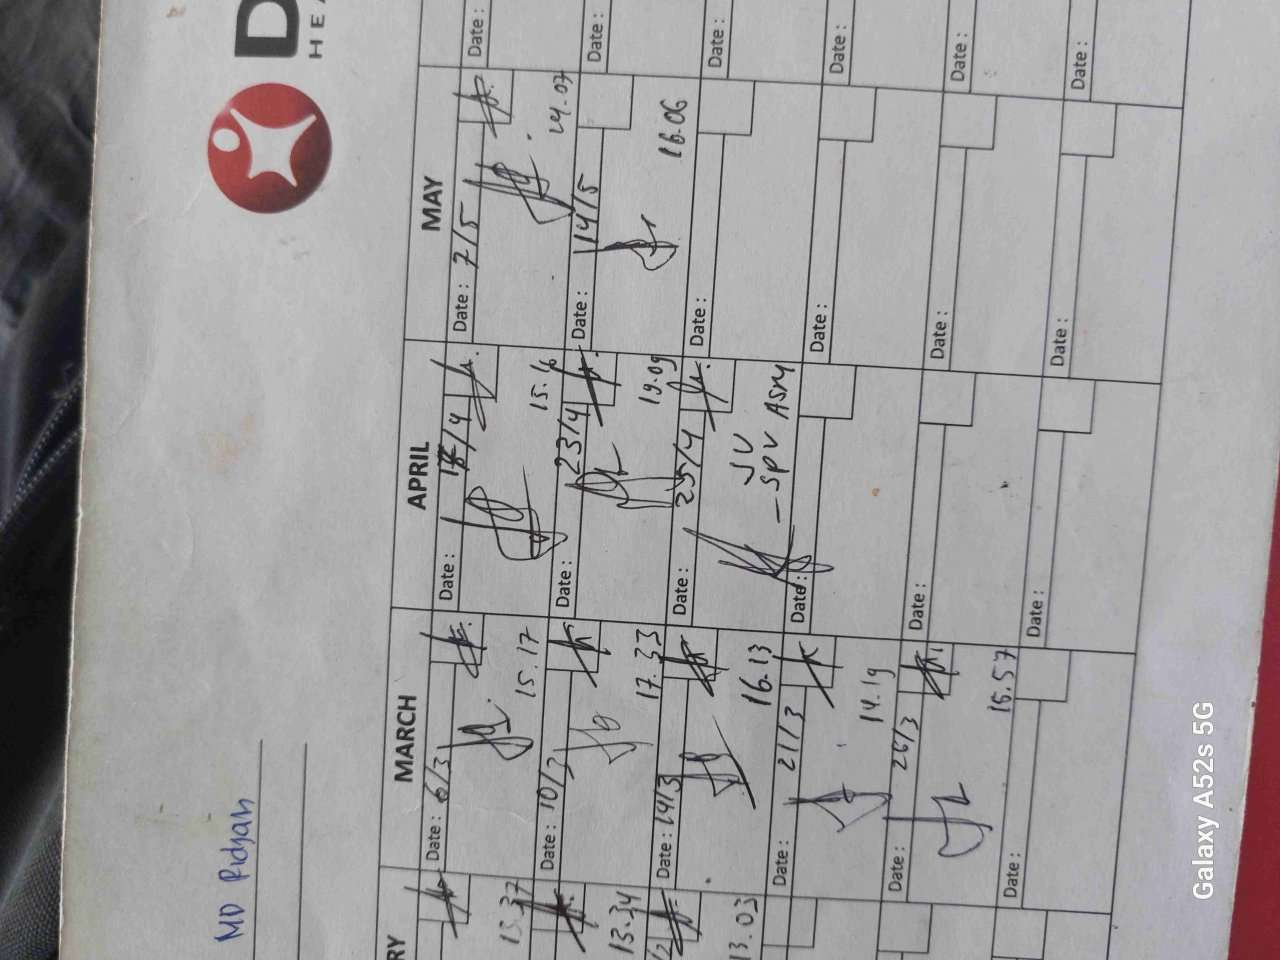 D
HEA
MD Ridzan
RY
MARCH
APRIL
MAY
13.37
Date : 6/3
15.17
Date :
15.16
Date : 7/5
14.07
Date :
13.34
Date : 10/3
17.33
Date : 23/4
19.09
Date : 14/5
16.06
Date :
13.03
Date : 14/3
16.13
Date : 25/4
JU
- SPV ASRY
Date :
Date :
Date : 21/3
14.19
Date :
Date :
Date :
Date : 26/3
Date :
Date :
Date :
Date :
Date :
Date :
Date :
Galaxy A52s 5G